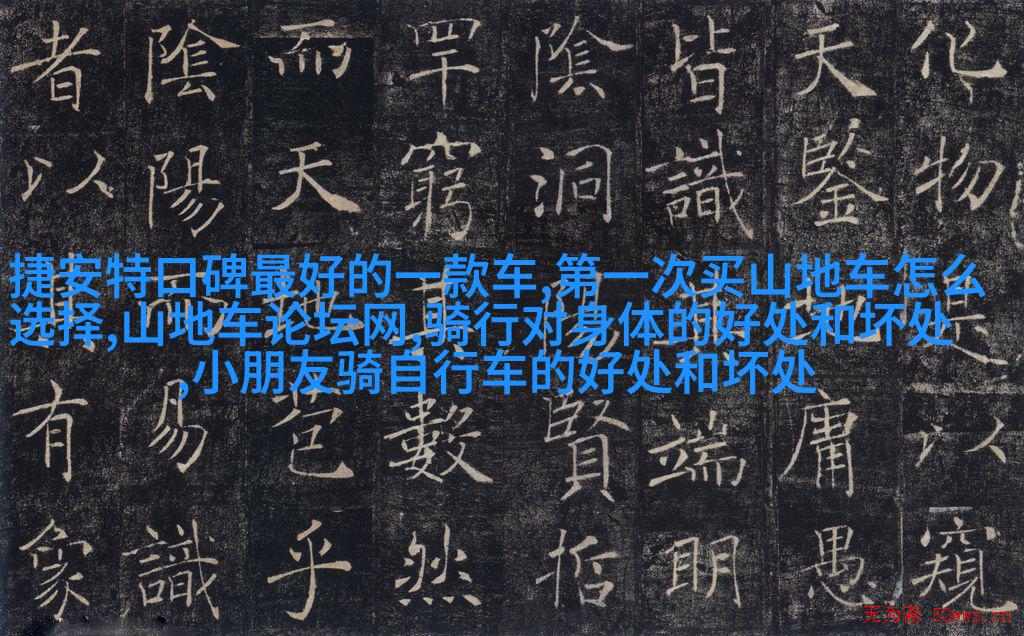 化物以窺
天鑒庸愚
皆識端明
陰洞賢哲
罕窮數然
而天苞乎
陰陽易識
者以有象
捷安特口碑最好的一款车,第一次买山地车怎么
选择,山地车论坛网,骑行对身体的好处和坏处
,小朋友骑自行车的好处和坏处
无为斋 52wwz.cn